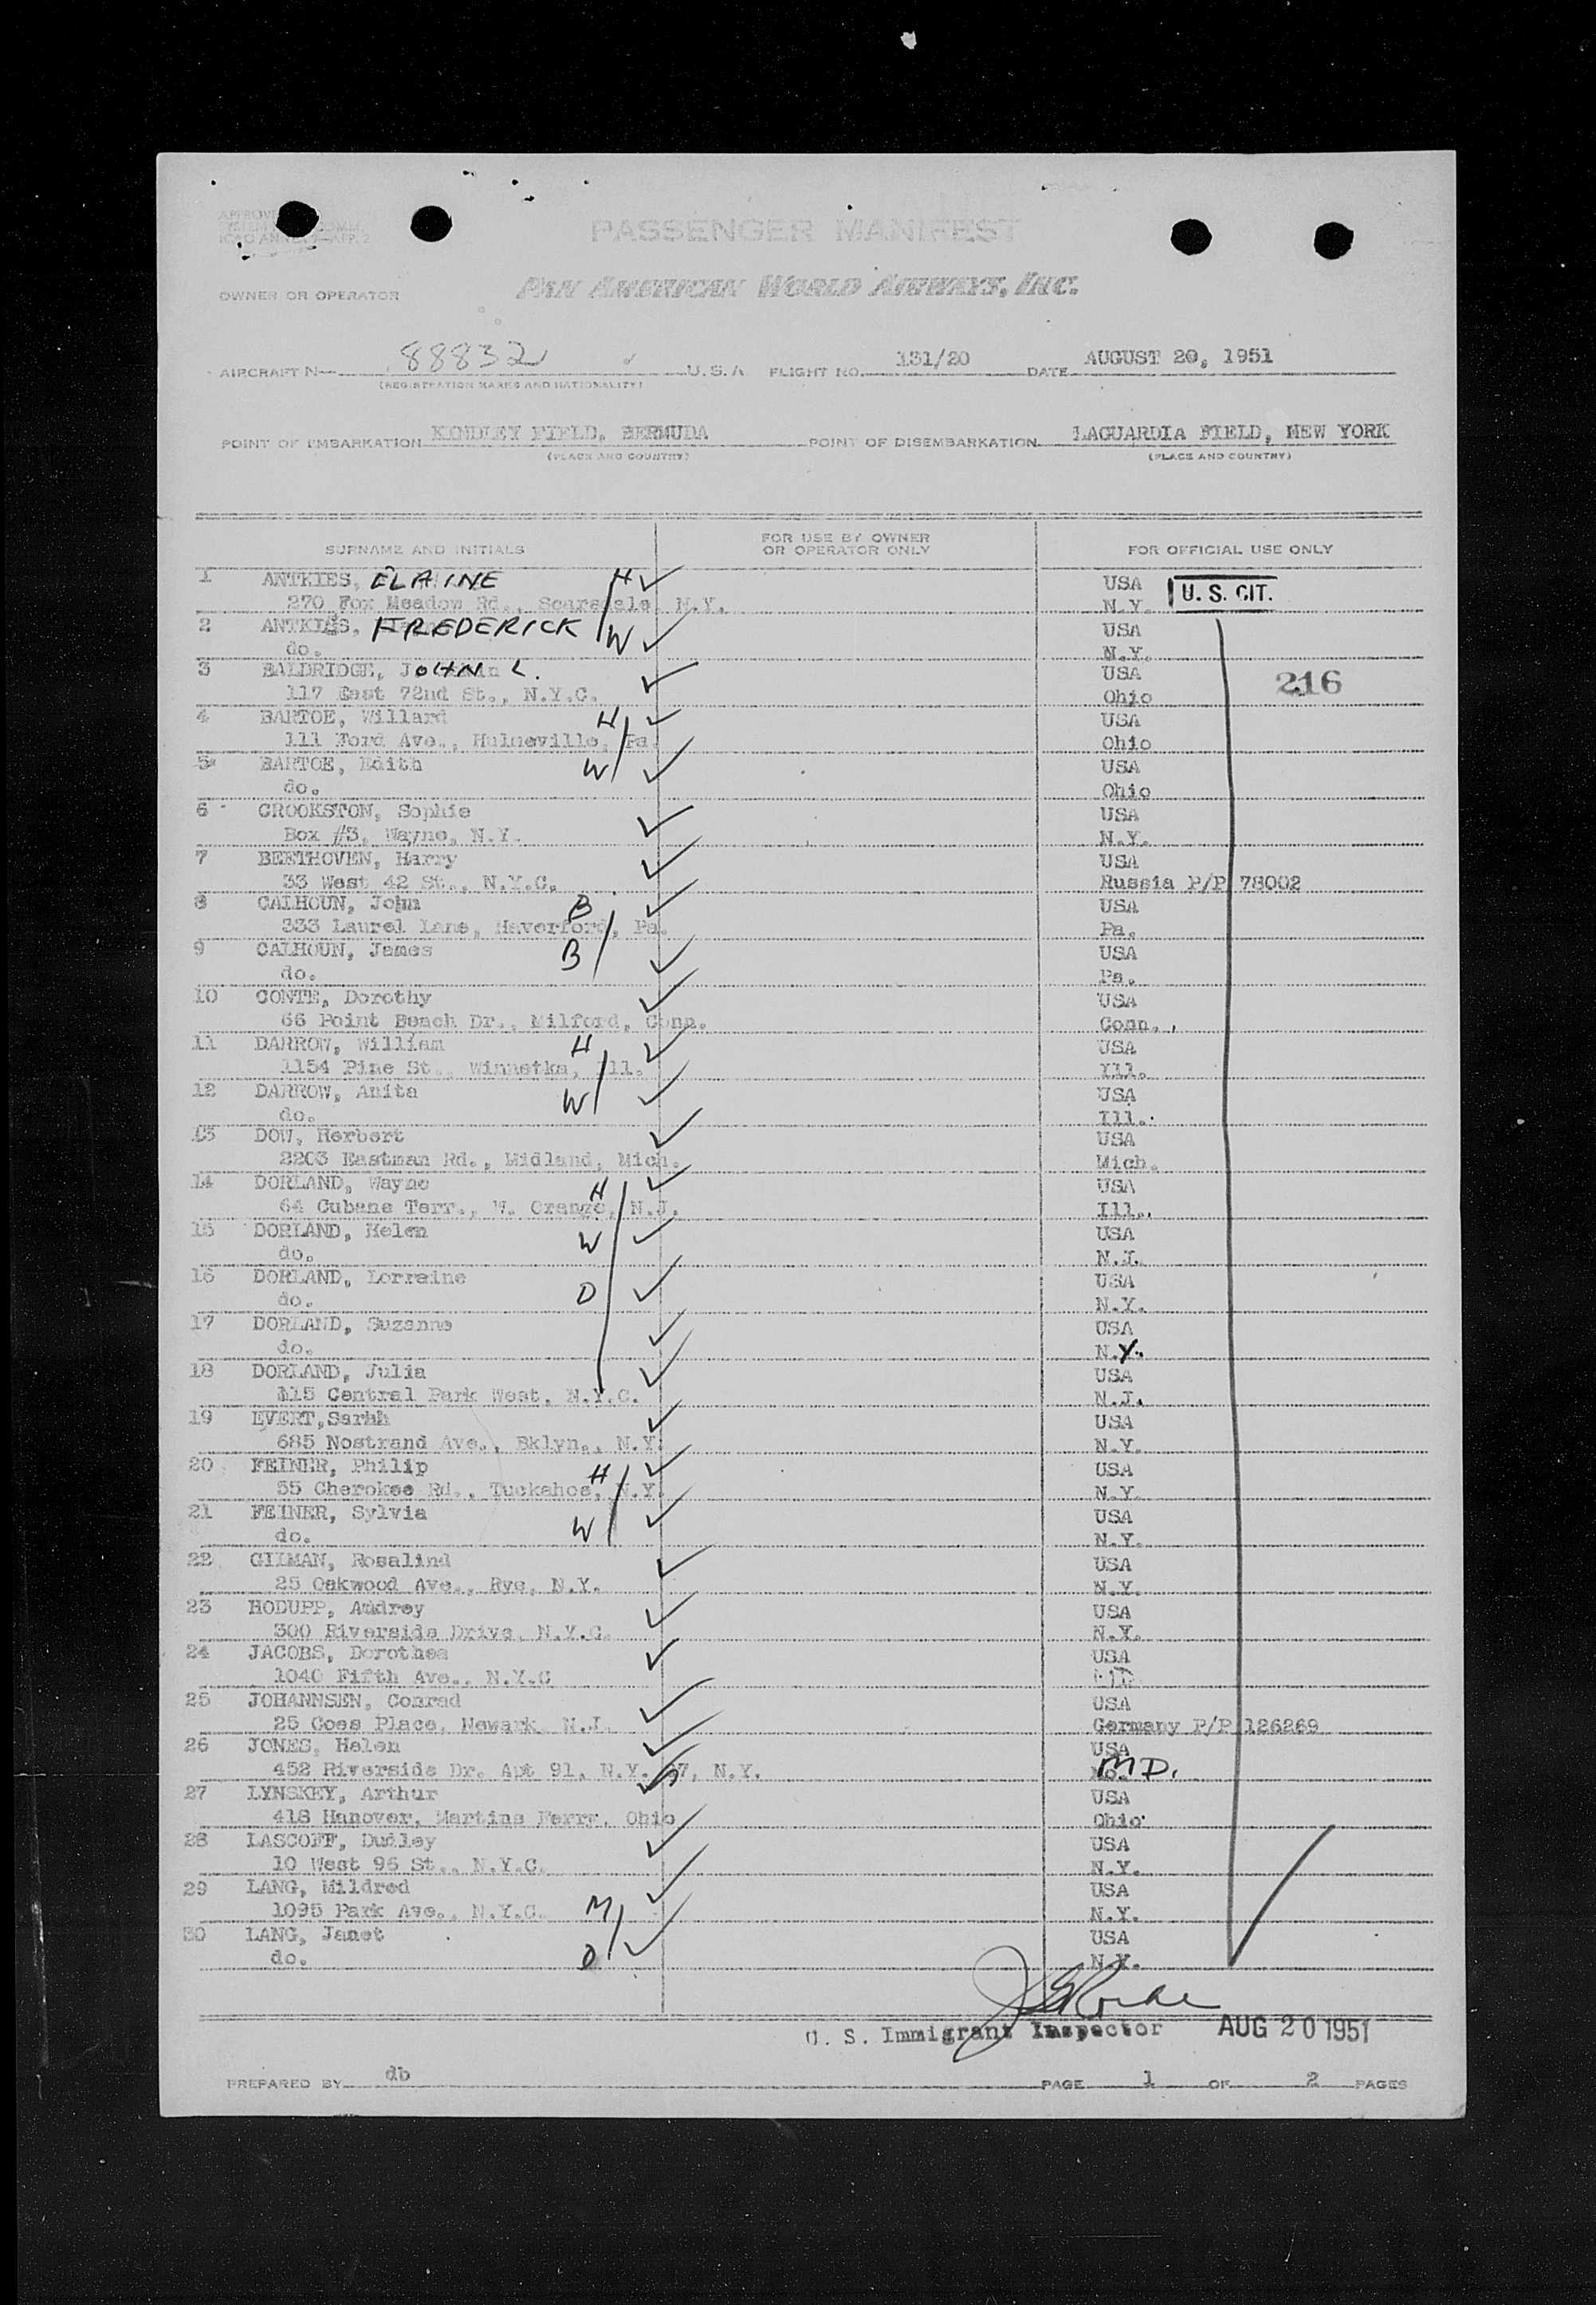 PASSENGER MANIFEST
OWNER OR OPERATOR PAN AMERICAN WORLD AIRWAYS, INC.
AIRCRAFT N 88832 U.S.A FLIGHT NO. 131/20 DATE AUGUST 20, 1951
(REGISTRATION MARKS AND NATIONALITY)
POINT OF EMBARKATION KINDLEY FIELD, BERMUDA POINT OF DISEMBARKATION LAGUARDIA FIELD, NEW YORK
(PLACE AND COUNTRY) (PLACE AND COUNTRY)
SURNAME AND INITIALS FOR USE BY OWNER OR OPERATOR ONLY FOR OFFICIAL USE ONLY
1 ANTKIES, ELAINE H USA U. S. CIT.
270 Fox Meadow Rd., Scarsdale, N.Y. N.Y.
2 ANTKIES, FREDERICK W USA
do. N.Y.
3 BALDRIDGE, JOHN L. USA 216
117 East 72nd St., N.Y.C. Ohio
4 BARTOE, Willard H USA
111 Ford Ave., Hulmeville, Pa. Ohio
5 BARTOE, Edith W USA
do. Ohio
6 CROOKSTON, Sophie USA
Box #3, Wayne, N.Y. N.Y.
7 BEETHOVEN, Harry USA
33 West 42 St., N.Y.C. Russia P/P 78002
8 CALHOUN, John B USA
333 Laurel Lane, Haverford, Pa. Pa.
9 CALHOUN, James B USA
do. Pa.
10 CONTE, Dorothy USA
66 Point Beach Dr., Milford, Conn. Conn.
11 DARROW, William H USA
1154 Pine St., Winnetka, Ill. Ill.
12 DARROW, Anita W USA
do. Ill.
13 DOW, Herbert USA
2203 Eastman Rd., Midland, Mich. Mich.
14 DORLAND, Wayne H USA
64 Cubane Terr., W. Orange, N.J. Ill.
15 DORLAND, Helen W USA
do. N.J.
16 DORLAND, Lorraine D USA
do. N.Y.
17 DORLAND, Suzanne USA
do. N.Y.
18 DORLAND, Julia USA
115 Central Park West, N.Y.C. N.J.
19 EVERT, Sarhh USA
685 Nostrand Ave., Bklyn., N.Y. N.Y.
20 FEINER, Philip H USA
55 Cherokee Rd., Tuckahoe, N.Y. N.Y.
21 FEINER, Sylvia W USA
do. N.Y.
22 GILMAN, Rosalind USA
25 Oakwood Ave., Rye, N.Y. N.Y.
23 HODUPP, Audrey USA
300 Riverside Drive, N.Y.C. N.Y.
24 JACOBS, Dorothea USA
1040 Fifth Ave., N.Y.C
25 JOHANNSEN, Conrad USA
25 Goes Place, Newark, N.J. Germany P/P 126269
26 JONES, Helen USA
452 Riverside Dr. Apt 91, N.Y. 27, N.Y. MD.
27 LYNSKEY, Arthur USA
418 Hanover, Martins Ferry, Ohio Ohio
28 LASCOFF, Dudley USA
10 West 96 St., N.Y.C. N.Y.
29 LANG, Mildred USA
1095 Park Ave., N.Y.C. M N.Y.
30 LANG, Janet USA
do. D N.Y.
U. S. Immigrant Inspector AUG 20 1951
PREPARED BY db PAGE 1 OF 2 PAGES